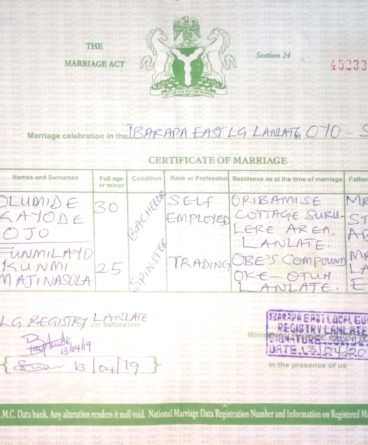 THE
MARRIAGE ACT
Section 24
Marriage celebration in the IBARAPA EAST LG LANLATE OYO - S
CERTIFICATE OF MARRIAGE
Names and Surnames Full age or minor Condition Rank or Profession Residence as at the time of marriage Father
OLUMIDE KAYODE OJO 30 BACHELOR SELF EMPLOYED ORIBAMISE COTTAGE SURULERE AREA, LANLATE.
FUNMILAYO KUNMI MAJINASOLA 25 SPINSTER TRADING OBE'S COMPOUND OKE-OTUN LANLATE.
LG. REGISTRY LANLATE
(or before)me
13/04/19
13/04/19
Minis
IBARAPA EAST LOCAL GOV
REGISTRY LANLATE
SIGNATURE
DATE 13/04/20
In the presence of us
.M.C. Data bank. Any alteration renders it null void. National Marriage Data Registration Number and Information on Registered M